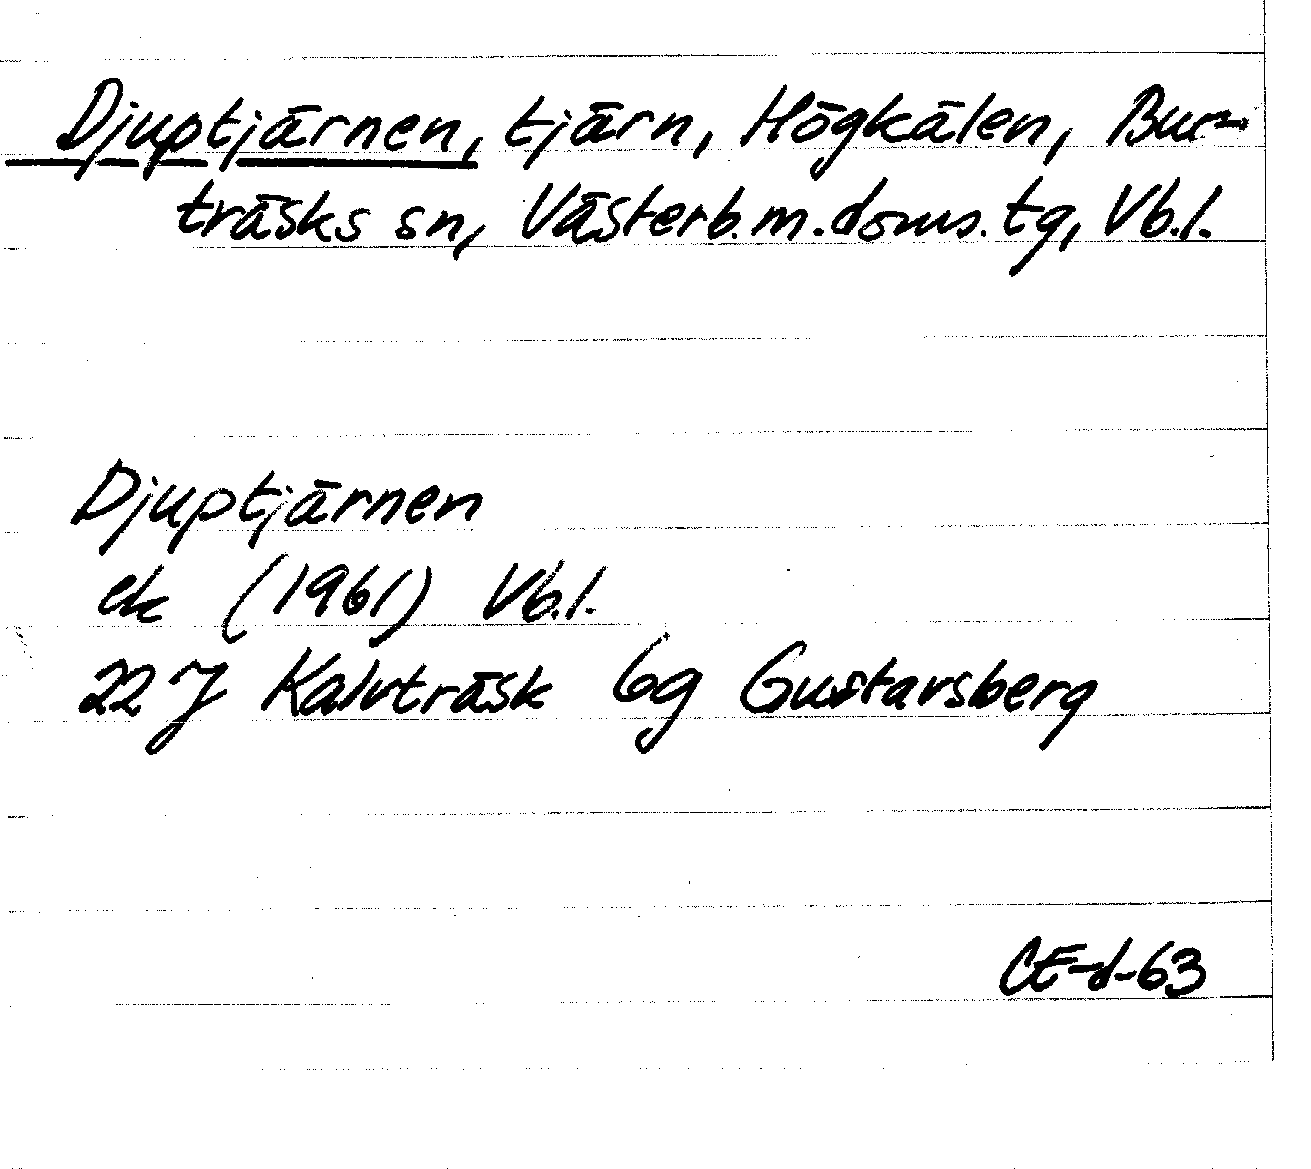 Djuptjärnen, tjärn, Högkälen, Bur-
träsks sn, Västerb.m.doms.tg, Vb.l.
Djuptjärnen
ek (1961) Vb.l.
22 J Kalvträsk 6g Gustavsberg
CE-d-63